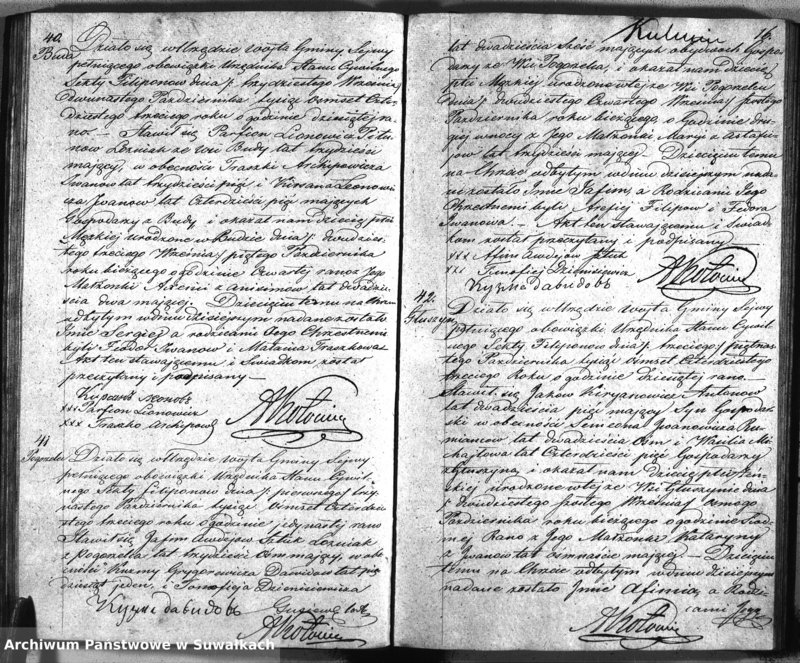 40.
Buda
Działo się w Urzędzie Wójta Gminy Sejwy
pełniącego obowiązki Urzędnika Stanu Cywilnego
Sekty Filiponów dnia trzydziestego Września
Października tysiąc ośmset Czter-
dziestego trzeciego roku o godzinie dziesiątej ra-
no. — Stawił się Parfieon Lionowicz
ze Wsi Budy lat trzydzieści
mający, w obecności Traszki Archipowicza
Iwanow lat trzydzieści pięć i Kirsana Leonowi-
cza Iwanow lat Czterdzieści pięć mających
Gospodarzy z Budy i okazał nam dziecię płci
Męzkiej urodzone w Budzie dnia dwudzies-
tego trzeciego Września piątego Października
roku bieżącego o godzinie Czwartej rano z Jego
Małżonki z Anisimow lat dwadzie-
ścia dwa mającej. Dziecięciu temu na Chrzcie
odbytym w dniu dzisiejszym nadane zostało
Imie Sergiej a rodzicami Jego Chrzestnemi
byli Fiodor Iwanow i Traszkowa
Akt ten stawającemu i Świadkom został
przeczytany i podpisany —
Кирсанъ
xxx Parfion Lionowicz
xxx Traszko Archipow
AKotowicz
41
Pogorzelec
Działo się w Urzędzie Wójta Gminy Sejwy
pełniącego obowiązki Urzędnika Stanu Cywil-
nego Sekty Filiponów dnia pierwszego trzy-
nastego Października tysiąc ośmset Czterdzie-
stego trzeciego roku o godzinie jedynastej rano
Stawił się Jafim Awdiejow
z Pogorzelca lat trzydzieści ośm mający, w obec-
ności Kuzmy Grygorewicza Dawidow lat pięć-
dziesiąt jeden, i Timofieja Dzienisiewicza
Кузма давидовъ
AKotowicz
16.
lat dwadzieścia sześć mających obydwóch Gospo-
darzy ze Wsi Pogorzelca, i okazał nam dziecię
płci Męzkiej urodzone w tejże Wsi Pogorzelcu
dnia dwudziestego Czwartego Września szóstego
Października roku bieżącego, o Godzinie dru-
giej w nocy z Jego Małżonki Maryi z Astafi-
jow lat trzydzieści mającej. Dziecięciu temu
na Chrzcie odbytym w dniu dzisiejszym nada-
ne zostało Imie Jafim, a Rodzicami Jego
Chrzestnemi byli Filipow i Fedora
Iwanowa — Akt ten stawającemu i Świad-
kom został przeczytany i podpisany
xxx Afim Awdiejow
xxx Timofiej Dzienisiewicz
Кузма давидовъ
AKotowicz
42.
Głuszyn
Działo się w Urzędzie Wójta Gminy Sejwy
pełniącego obowiązki Urzędnika Stanu Cywil-
nego Sekty Filiponów dnia trzeciego piętnas-
tego Października tysiąc ośmset Czterdziestego
trzeciego Roku o godzinie dziesiątej rano —
Stawił się Jakow Antonow
lat dwadzieścia pięć mający Syn Gospodar-
ski w obecności Semiona Iwanowicza
lat dwadzieścia ośm i Wasilia Mi-
chajłowa lat Czterdzieści pięć Gospodarzy
z Głuszyna, i okazał nam dziecię płci Żeń-
skiej urodzone w tejże Wsi Głuszynie dnia
dwudziestego szóstego Września ósmego
Października roku bieżącego o godzinie siód-
mej Rano z Jego Małżonki Kataryny
z Iwanow lat ośmnaście mającej — Dziecięciu
temu na Chrzcie odbytym w dniu dzisiejszym
nadane zostało Imie Afimia, a Rodzi-
cami Jego
AKotowicz
Archiwum Państwowe w Suwałkach